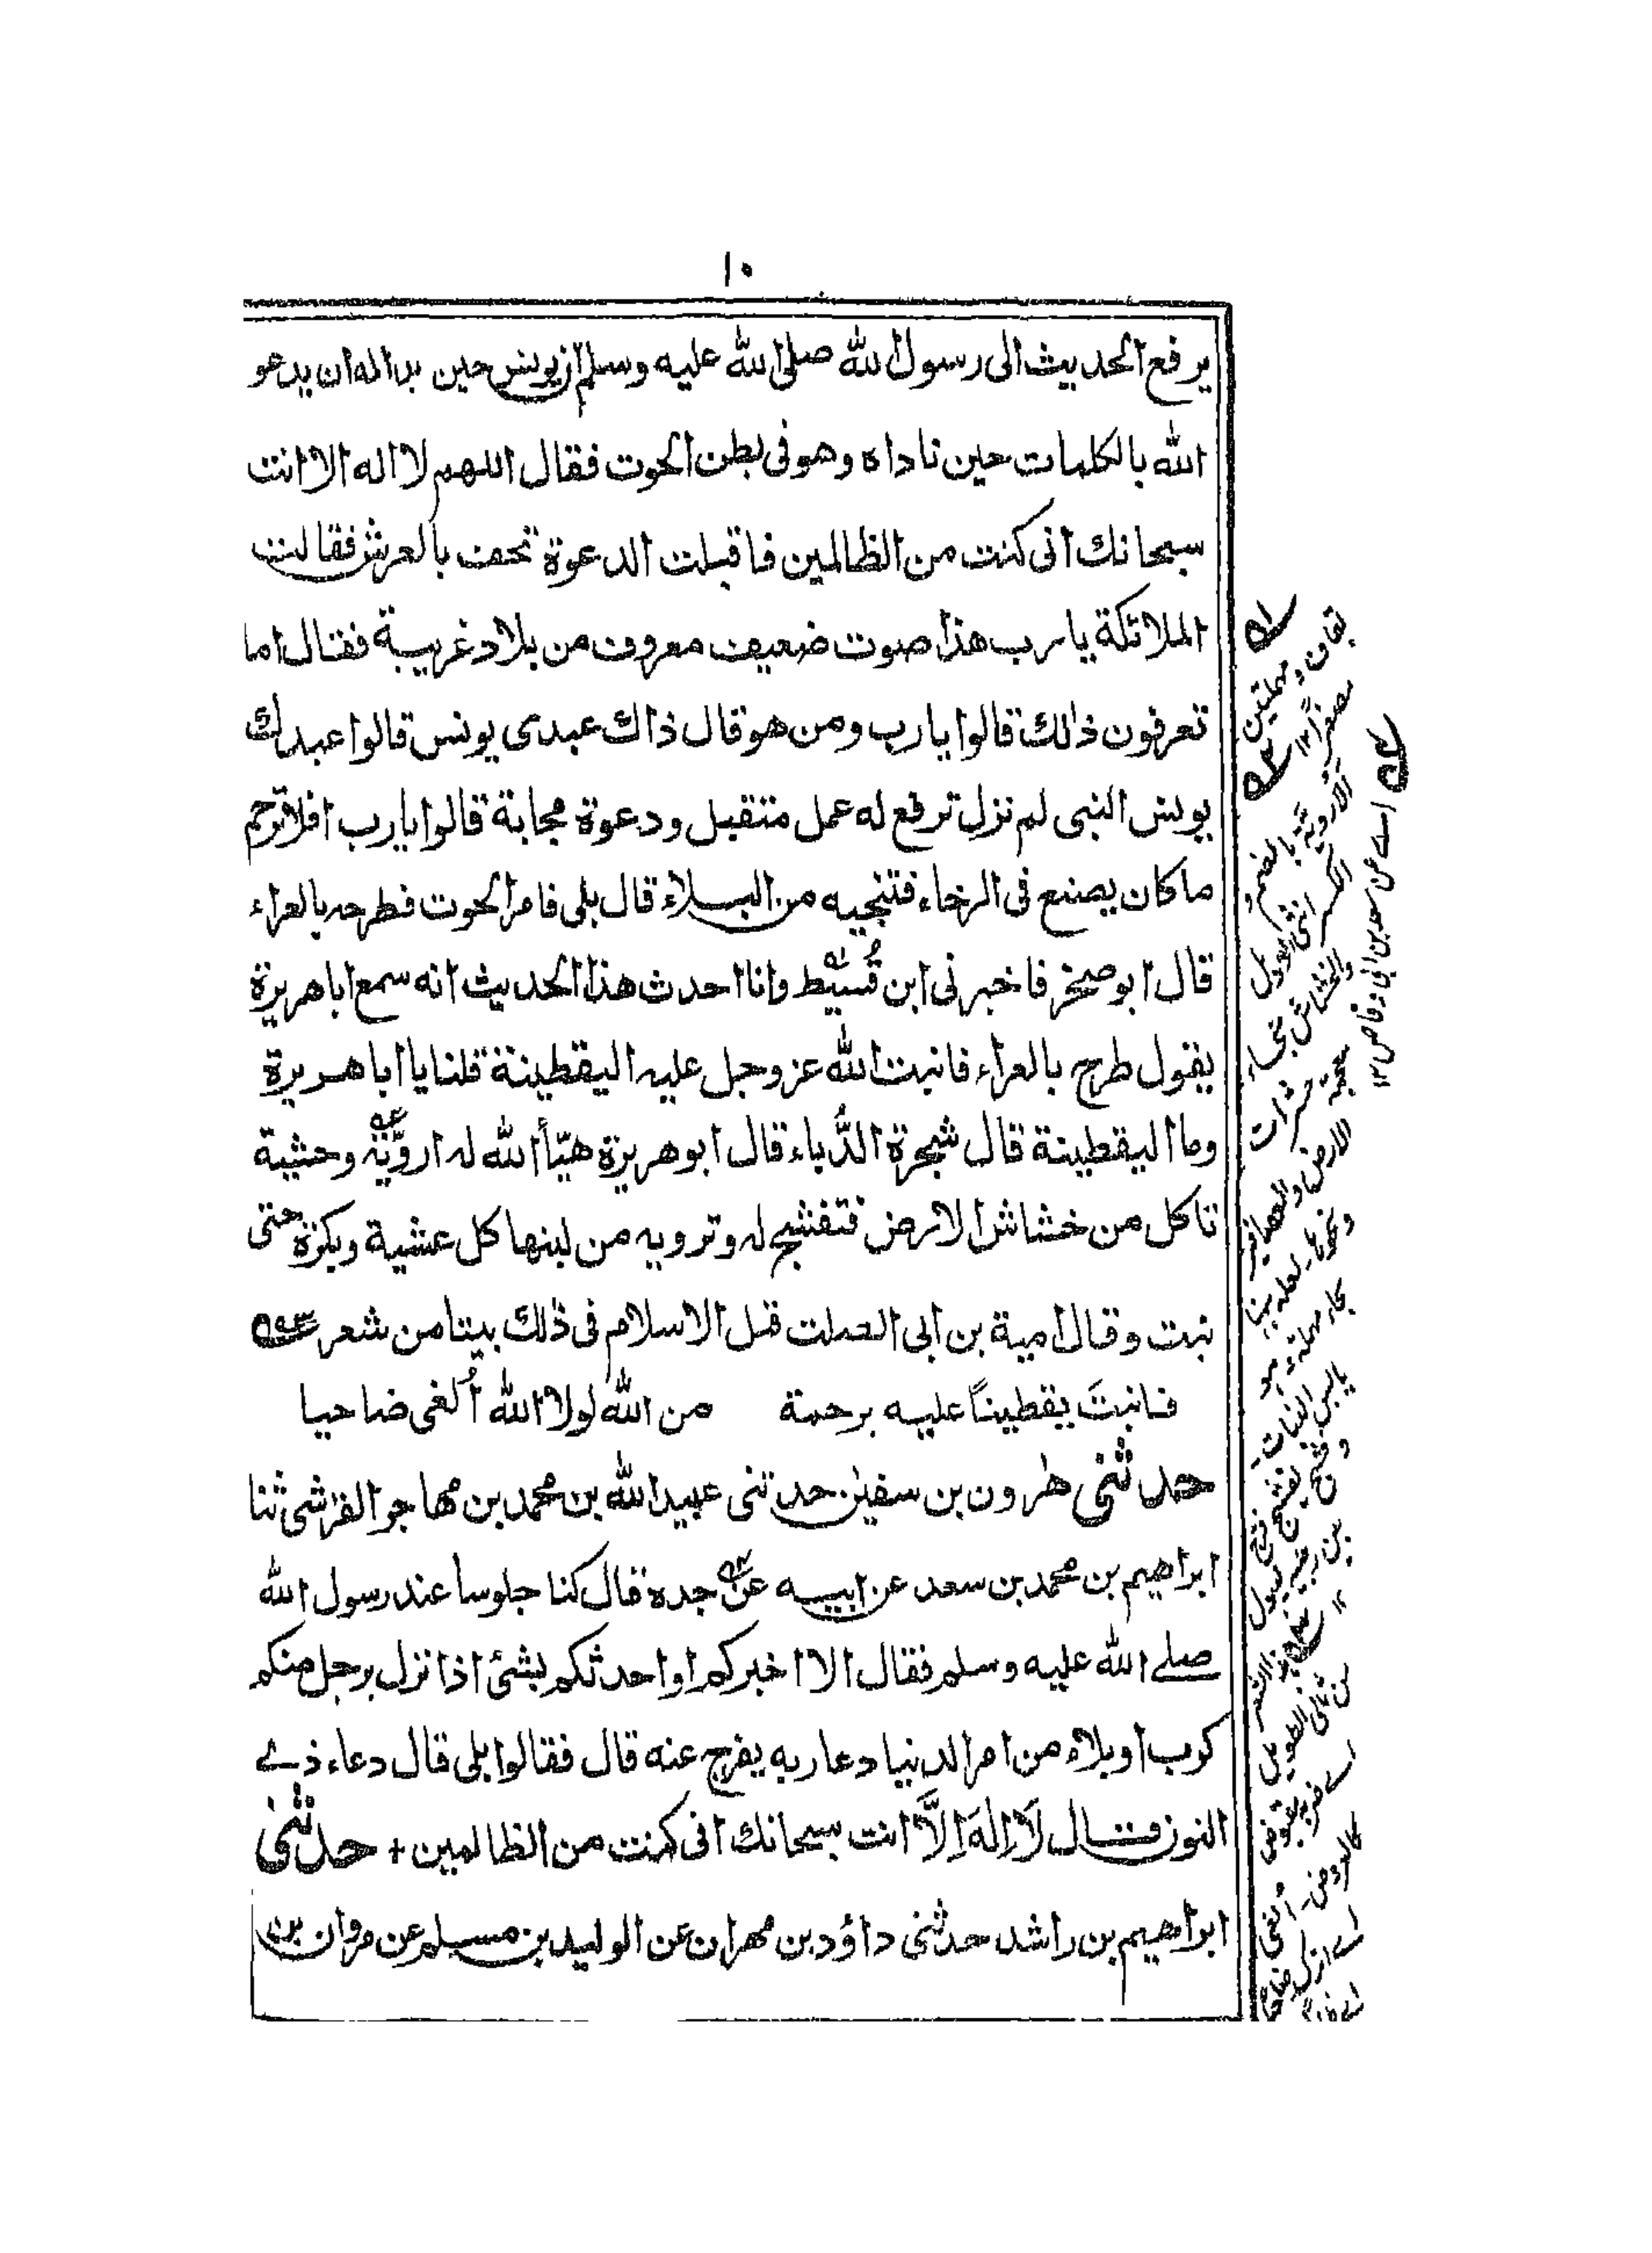 ١٠
يرفع الحديث الى رسول الله صلى الله عليه وسلم ان يونس حين بدا له ان يدعو
الله بالكلمات حين ناداه وهو فى بطن الحوت فقال اللهم لا اله الا انت
سبحانك انى كنت من الظالمين فاقبلت الدعوة تحف بالعرش فقالت
الملائكة يا رب هذا صوت ضعيف معروف من بلاد غريبة فقال اما
تعرفون ذلك قالوا يا رب ومن هو قال ذاك عبدى يونس قالوا عبدك
يونس النبى لم نزل ترفع له عمل متقبل ودعوة مجابة قالوا يا رب افلا ترحم
ما كان يصنع فى الرخاء فتنجيه من البلاء قال بلى فامر الحوت فطرحه بالعراء
قال ابو صخر فاخبرنى ابن قُسيط وانا احدث هذا الحديث انه سمع ابا هريرة
يقول طرح بالعراء فانبت الله عز وجل عليه اليقطينة قلنا يا ابا هريرة
وما اليقطينة قال شجرة الدُّباء قال ابو هريرة هيّأ الله له اروّية وحشية
تاكل من خشاش الارض فتفشج له وترويه من لبنها كل عشية وبكرة حتى
نبت وقال امية بن ابى الصلت قبل الاسلام فى ذلك بيتا من شعر
فانبتَ يقطيناً عليه برحمة من الله لولا الله أُلفى ضاحيا
حدثنى هرون بن سفين حدثنى عبيد الله بن محمد بن مهاجر القرشى ثنا
ابراهيم بن محمد بن سعد عن ابيه عن جده قال كنا جلوسا عند رسول الله
صلے الله عليه وسلم فقال الا اخبركم او احدثكم بشئ اذا نزل برجل منكم
كرب او بلاء من امر الدنيا دعا ربه يفرج عنه قال فقالوا بلى قال دعاء ذے
النون قال لَا إِلهَ إِلَّا انت سبحانك انى كنت من الظالمين + حدثنى
ابراهيم بن راشد حدثنى داؤد بن مهران عن الوليد بن مسلم عن مروان بن
بقاف ومهملتين مصغراً ١٢
اے عن سعد بن ابى وقاص ١٢